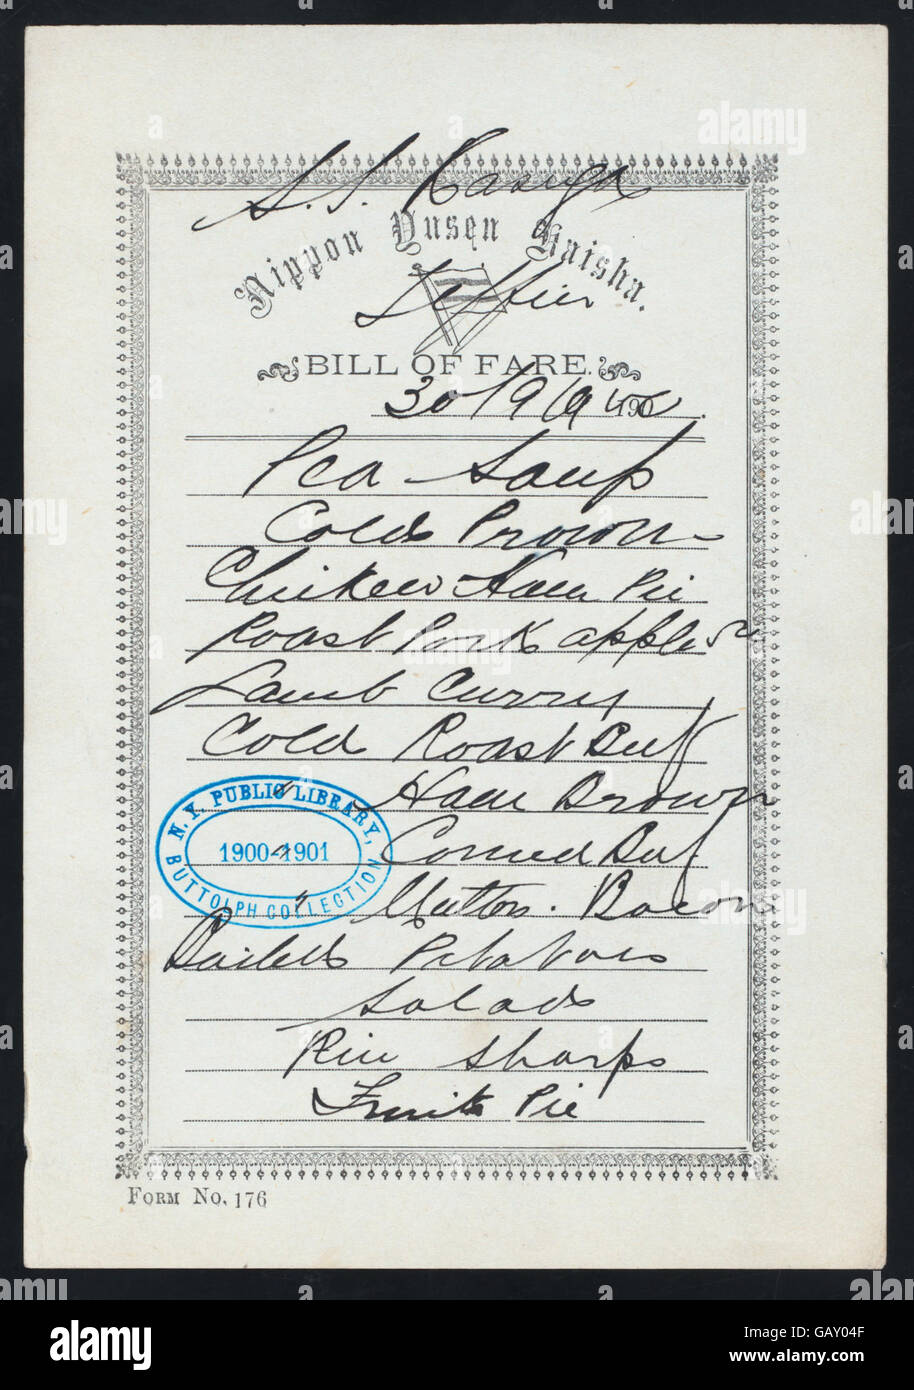 S.S. Kasuga
Nippon Yusen Kaisha.
Tiffin
BILL OF FARE.
30/9/9 190
Pea Soup
Cold Prown
Chicken Ham Pie
Roast Pork apple
Lamb Curry
Cold Roast Beef
" Ham Brown
" Corned Beef
" Mutton. Bacon
Boiled Potatoes
Salad
Fruit Pie
N.Y. PUBLIC LIBRARY,
1900-1901
BUTTOLPH COLLECTION
FORM NO. 176
alamy
alamy
Image ID: GAY04F
www.alamy.com